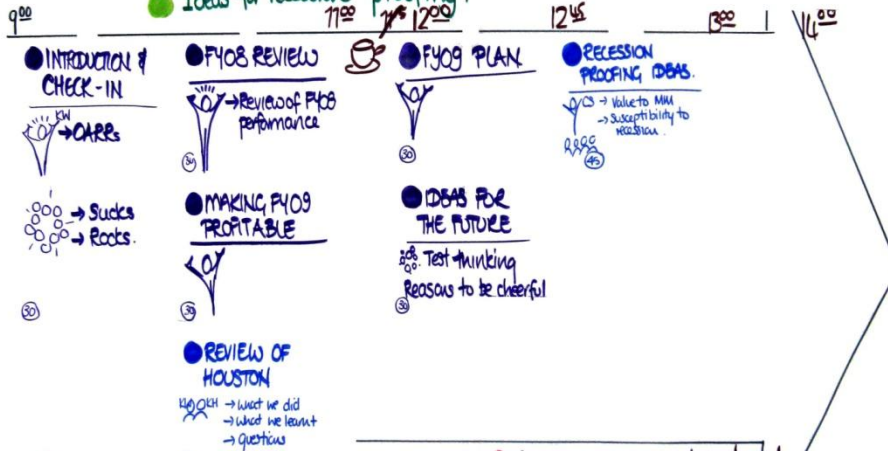 Ideas for recession proofing!
9:00 11:00 12:00 12:45 13:00 14:00
INTRODUCTION &
CHECK-IN
KW
→OARRs
→ Sucks
→ Rocks.
30
FY08 REVIEW
→Review of FY08
performance
30
MAKING FY09
PROFITABLE
30
REVIEW OF
HOUSTON
KW KH → what we did
→ what we learnt
→ questions
FY09 PLAN
30
IDEAS FOR
THE FUTURE
Test thinking
Reasons to be cheerful
30
RECESSION
PROOFING IDEAS.
CS → Value to MM
→ Susceptibility to
recession.
45